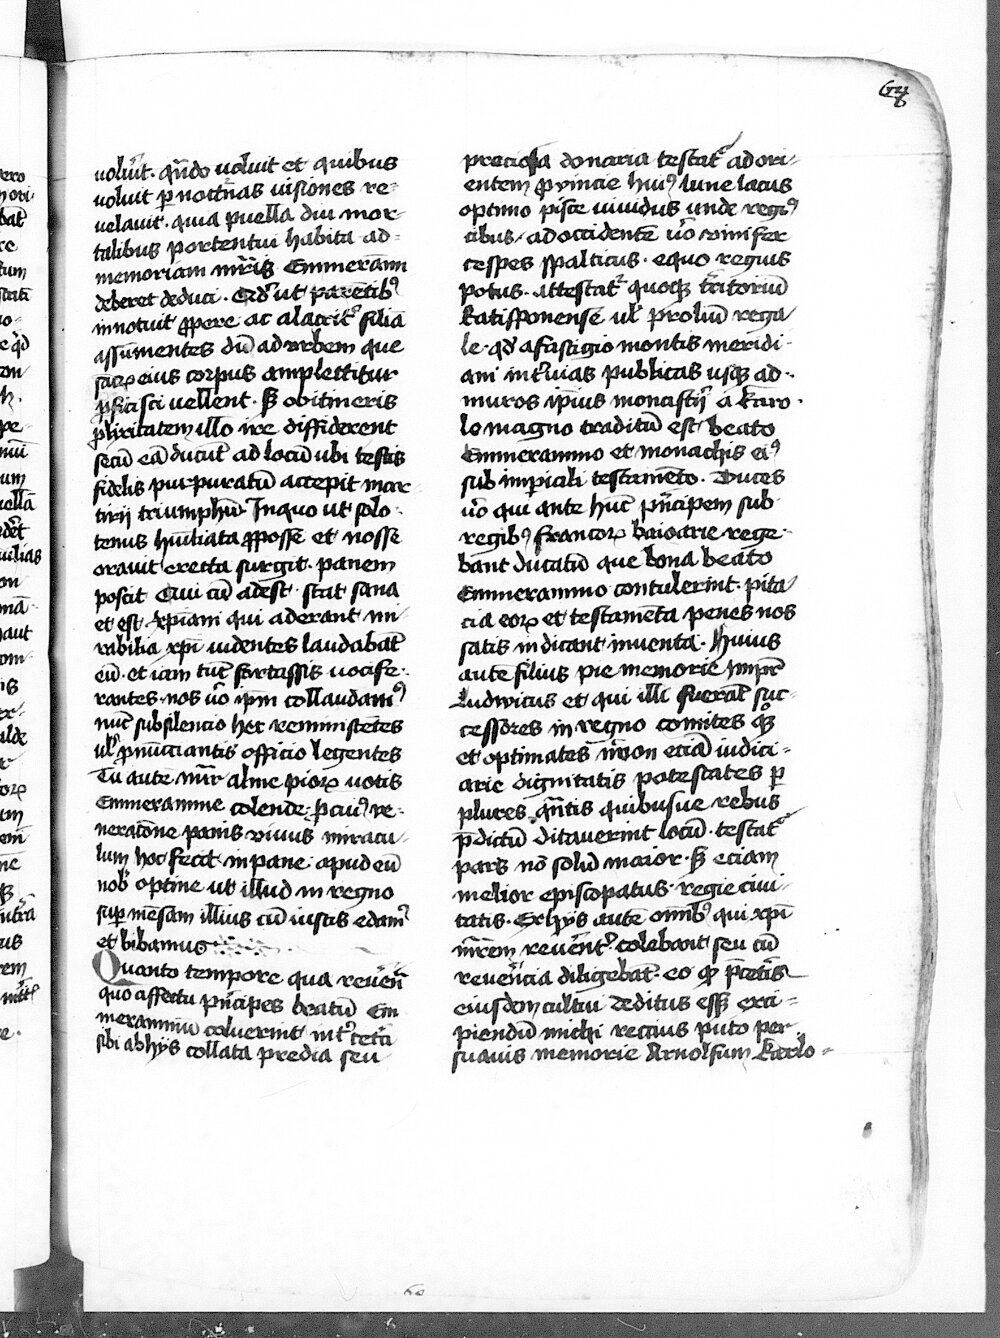 voluit. qn̄do voluit et quibus
voluit p̄ nocturnas visiones re-
velavit. quia puella diu mor-
talibus portentui habita ad-
memoriam mr̄is Emmerām̄
deberet deduci. Qd' ut parētibꝰ
innotuit ꝓpere ac alacrit' filiā
assumentes dū ad urbem que
sacrꝝ eius corpus amplectitur
ꝓficisci vellent. S; ob itineris
ꝓlixitatem illo ire diffiderent
secū eā ducūt ad locū ubi testis
fidelis purpuratū accepit mar-
tirij triumphū. In quo ut solo-
tenus hūiliata ꝓ posse et nosse
oravit erecta surgit. panem
poscit Cui cū adest. stat sana
et est. xp̄iani qui aderant mi-
rabilia xp̄i videntes laudabāt
eū. et iam tūc fortassis vocife-
rantes. nos v̄o ip̄m collaudamꝰ
nūc sub silencio hec reministētes
ul' p̄nūcciantis officio legentes
Tu autē mr̄r alme piorꝝ votis
Emmeramme colende. p̄ cuiꝰ ve-
neracōne panis vivus miracu-
lum hoc fecit in pane. apud eū
nob' optine ut illud in regno
sup̄ mēsam illius cū iustis edamꝰ
et bibamus
Quanto tempore qua revēn̄
quo affectu p̄ncipes beatū Em̄
merammū coluerint int' cetā
sibi ab hijs collata predia seu
preciosa donaria testat' ad ori-
entem ꝓvincie huiꝰ lune lacus
optimo pisce vividus unde regiꝰ
cibus. ad occidentē v̄o vinifer
cespes spalticus. e quo regius
potus. attestat' quoqꝫ t'ritoriū
Ratisponensē ul' proliū rega-
le. qd' a fastigio montis meridi-
ani int' vias publicas usqꝫ ad-
muros ip̄ius monast'ij a Karo-
lo magno traditū est beato
Emmerammo et monachis eiꝰ
sub imp̄iali testamēto. Duces
v̄o qui ante hūc p̄ncipem sub
regibꝰ francorꝝ baioarie rege-
bant ducatū que bona beato
Emmerammo contulerint. pita-
cia eorꝝ et testamēta penes nos
satis indicant inventa. Huius
autē filius pie memorie Imp̄r
Ludwicus et qui illi fuerāt suc-
cessores in regno comites qꝫ
et optimates nn̄on eciā iudici-
arie dignitatis potestates p̄
plures. qn̄tis quibusue rebus
p̄dictū ditaverint locū. testat'
pars nō solū maior. s; eciam
melior episcopatus. regie civi-
tatis. Ex hijs autē om̄ibꝰ qui xp̄i
mr̄rem revēnt' colebant seu cū
revēn̄cia diligebāt. eo qꝫ p̄cetis
eiusdem cultui deditus esse exci-
piendū michi rectius puto per-
suavis memorie Arnolfum Karlo-